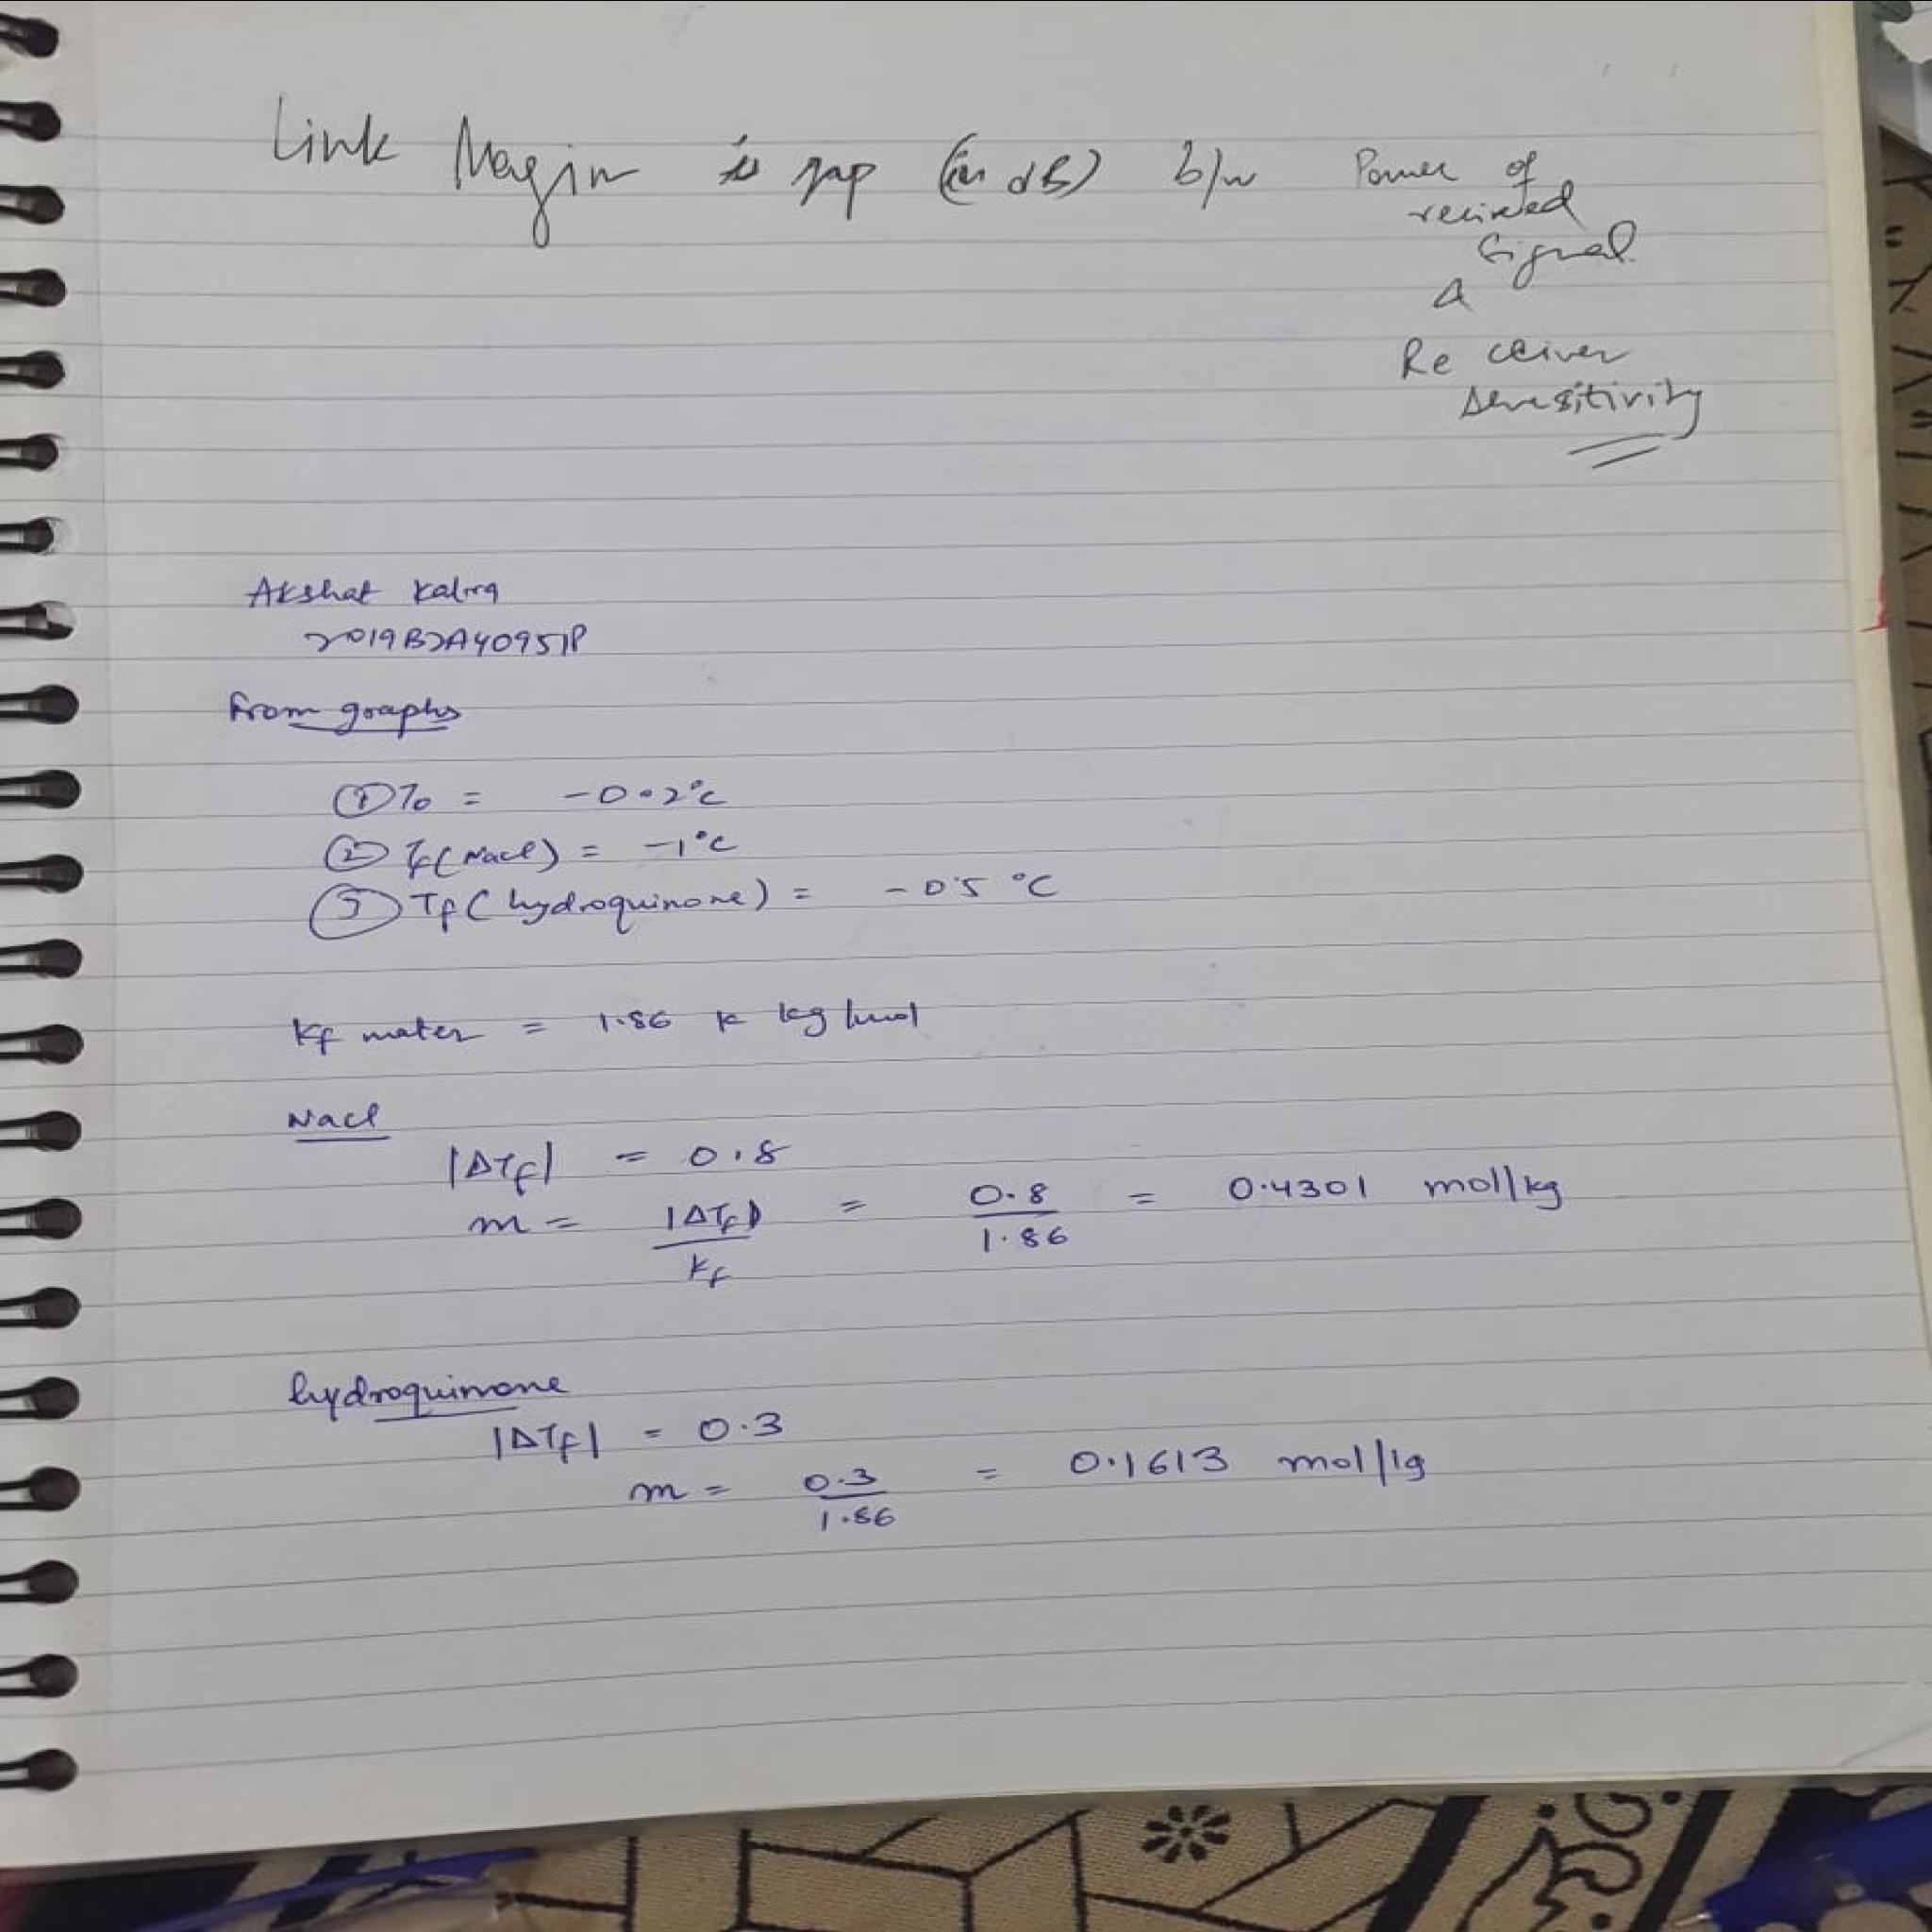 Link Margin is gap (in dB) b/w Power of
recieved
Signal
&
Receiver
sensitivity
Akshat Kalra
2019B2A40951P
From graphs
① T₀ = -0.2°C
② Tf (NaCl) = -1°C
③ Tf (hydroquinone) = -0.5 °C
Kf water = 1.86 K kg/mol
NaCl
|ΔTf| = 0.8
m = |ΔTf| / Kf = 0.8 / 1.86 = 0.4301 mol/kg
hydroquinone
|ΔTf| = 0.3
m = 0.3 / 1.86 = 0.1613 mol/kg